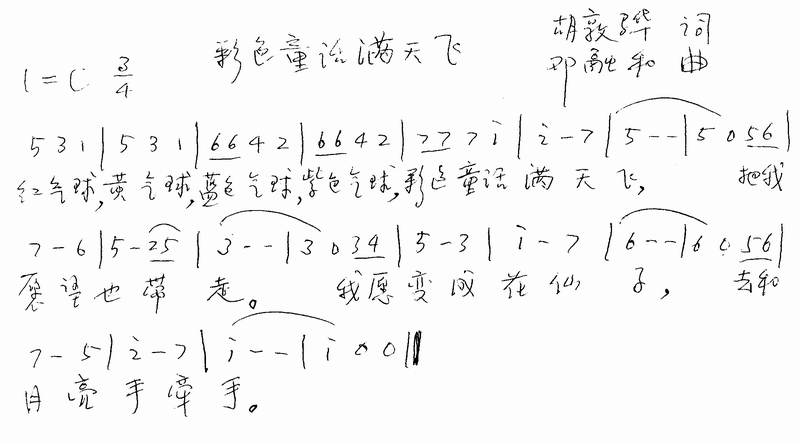 彩色童话满天飞
胡敦骅 词
1=C 3/4
邓融和 曲
5 3 1 | 5 3 1 | 66 4 2 | 66 4 2 | 77 7 i | 2 - 7 | 5 - - | 5 0 56 |
红气球,黄气球,蓝色气球,紫色气球,彩色童话满天飞, 把我
7 - 6 | 5 - 25 | 3 - - | 3 0 34 | 5 - 3 | i - 7 | 6 - - | 6 0 56 |
愿望也带走。 我愿变成花仙子, 去和
7 - 5 | 2 - 7 | i - - | i 0 0 ||
月亮手牵手。